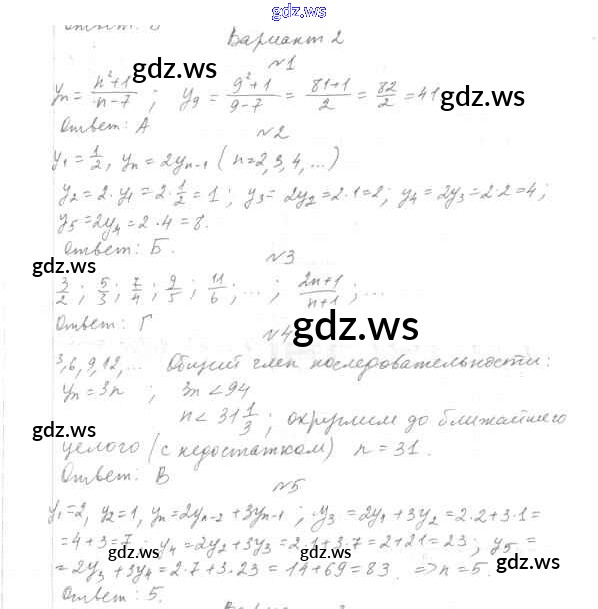 gdz.ws
Вариант 2
gdz.ws
№1
yn = n²+1 / n-7 ; y9 = 9²+1 / 9-7 = 81+1 / 2 = 82 / 2 = 41
gdz.ws
Ответ: А
№2
y1 = 1/2, yn = 2yn-1 (n=2,3,4,...)
y2 = 2·y1 = 2·1/2 = 1; y3 = 2y2 = 2·1=2; y4 = 2y3 = 2·2 = 4;
y5 = 2y4 = 2·4 = 8.
Ответ: Б.
gdz.ws
№3
3/2 ; 5/3 ; 7/4 ; 9/5 ; 11/6 ; ... ; 2n+1 / n+1 ; ...
Ответ: Г
gdz.ws
№4
3,6,9,12,... Общий член последовательности:
yn = 3n ; 3n < 94
n < 31 1/3 ; округлим до ближайшего
gdz.ws
целого (с недостатком) n = 31.
Ответ: В
gdz.ws
№5
y1=2, y2=1, yn=2yn-2+3yn-1 ; y3 = 2y1+3y2=2·2+3·1=
=4+3=7; y4=2y2+3y3=2·1+3·7=2+21=23; y5=
gdz.ws
gdz.ws
gdz.ws
=2y3+3y4=2·7+3·23=14+69=83. => n=5.
Ответ: 5.